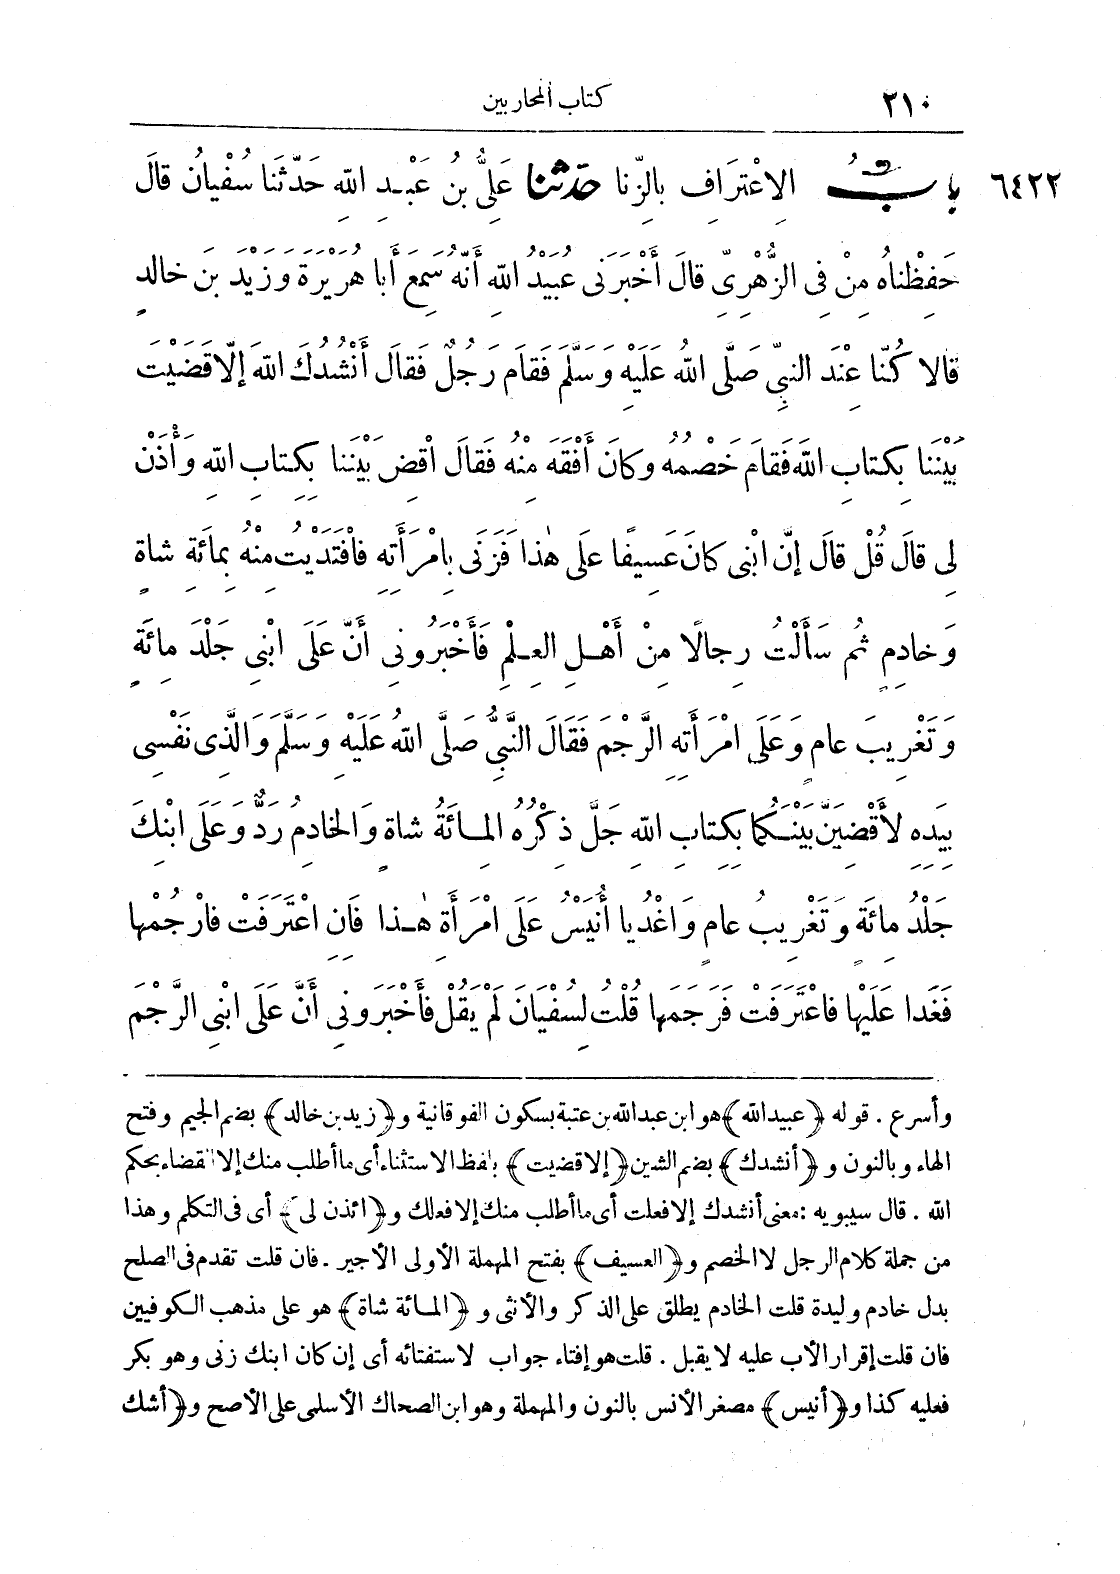 ٢١٠ كتاب المحاربين
٦٤٢٢ بابُ الِاعْتِرَافِ بِالزِّنا حَدَّثَنا عَلِيُّ بنُ عَبْدِ اللهِ حَدَّثَنا سُفْيانُ قالَ
حَفِظْناهُ مِنْ فِى الزُّهْرِىِّ قالَ أَخْبَرَنِى عُبَيْدُ اللهِ أَنَّهُ سَمِعَ أَبا هُرَيْرَةَ وَزَيْدَ بنَ خالِدٍ
قالا كُنَّا عِنْدَ النبِّى صَلَّى اللهُ عَلَيْهِ وَسَلَّمَ فَقامَ رَجُلٌ فَقالَ أَنْشُدُكَ اللهَ إلَّا قَضَيْتَ
بَيْنَنا بِكتابِ اللهِ فَقامَ خَصْمُهُ وكانَ أَفْقَهَ مِنْهُ فَقالَ اقْضِ بَيْنَنا بِكتابِ اللهِ وَأْذَنْ
لِى قالَ قُلْ قالَ إنَّ ابْنِى كانَ عَسِيفًا عَلَى هٰذا فَزَنَى بِامْرَأَتِهِ فافْتَدَيْتُ مِنْهُ بِمائَةِ شاةٍ
وَخادِمٍ ثُم سَأَلْتُ رِجالًا مِنْ أَهْلِ العِلْمِ فَأَخْبَرُونِى أَنَّ عَلَى ابْنِى جَلْدَ مائَةٍ
وَتَغْرِيبَ عامٍ وَعَلَى امْرَأَتِهِ الرَّجْمَ فَقَالَ النَّبىُّ صَلَّى اللهُ عَلَيْهِ وَسَلَّمَ وَالَّذِى نَفْسِى
بِيَدِهِ لأَقْضِيَنَّ بَيْنَكُما بِكِتابِ اللهِ جَلَّ ذِكْرُهُ المائَةُ شاةٍ وَالخادِمُ رَدٌّ وَعَلَى ابْنِكَ
جَلْدُ مائَةٍ وَتَغْرِيبُ عامٍ وَاغْدُ يا أُنَيْسُ عَلَى امْرَأَةِ هٰذا فَانِ اعْتَرَفَتْ فارْجُمْها
فَغَدا عَلَيْها فاعْتَرَفَتْ فَرَجَمَها قُلْتُ لِسُفْيانَ لَمْ يَقُلْ فأَخْبَرُونِى أَنَّ عَلَى ابْنِى الرَّجْمَ
وأسرع . قوله ﴿عبيد الله﴾ هو ابن عبد الله بن عتبة بسكون الفوقانية و﴿زيد بن خالد﴾ بضم الجيم وفتح
الهاء وبالنون و﴿أنشدك﴾ بضم الشين ﴿إلا قضيت﴾ بلفظ الاستثناء أى ما أطلب منك إلا القضاء بحكم
الله . قال سيبويه : معنى أنشدك إلا فعلت أى ما أطلب منك إلا فعلك و﴿ائذن لى﴾ أى فى التكلم وهذا
من جملة كلام الرجل لا الخصم و﴿العسيف﴾ بفتح المهملة الأولى الأجير . فان قلت تقدم فى الصلح
بدل خادم وليدة قلت الخادم يطلق على الذكر والأنثى و﴿المائة شاة﴾ هو على مذهب الكوفيين
فان قلت إقرار الأب عليه لا يقبل . قلت هو إفتاء جواب لاستفتائه أى إن كان ابنك زنى وهو بكر
فعليه كذا و﴿أنيس﴾ مصغر الأنس بالنون والمهملة وهو ابن الضحاك الأسلمى على الأصح و﴿أشك